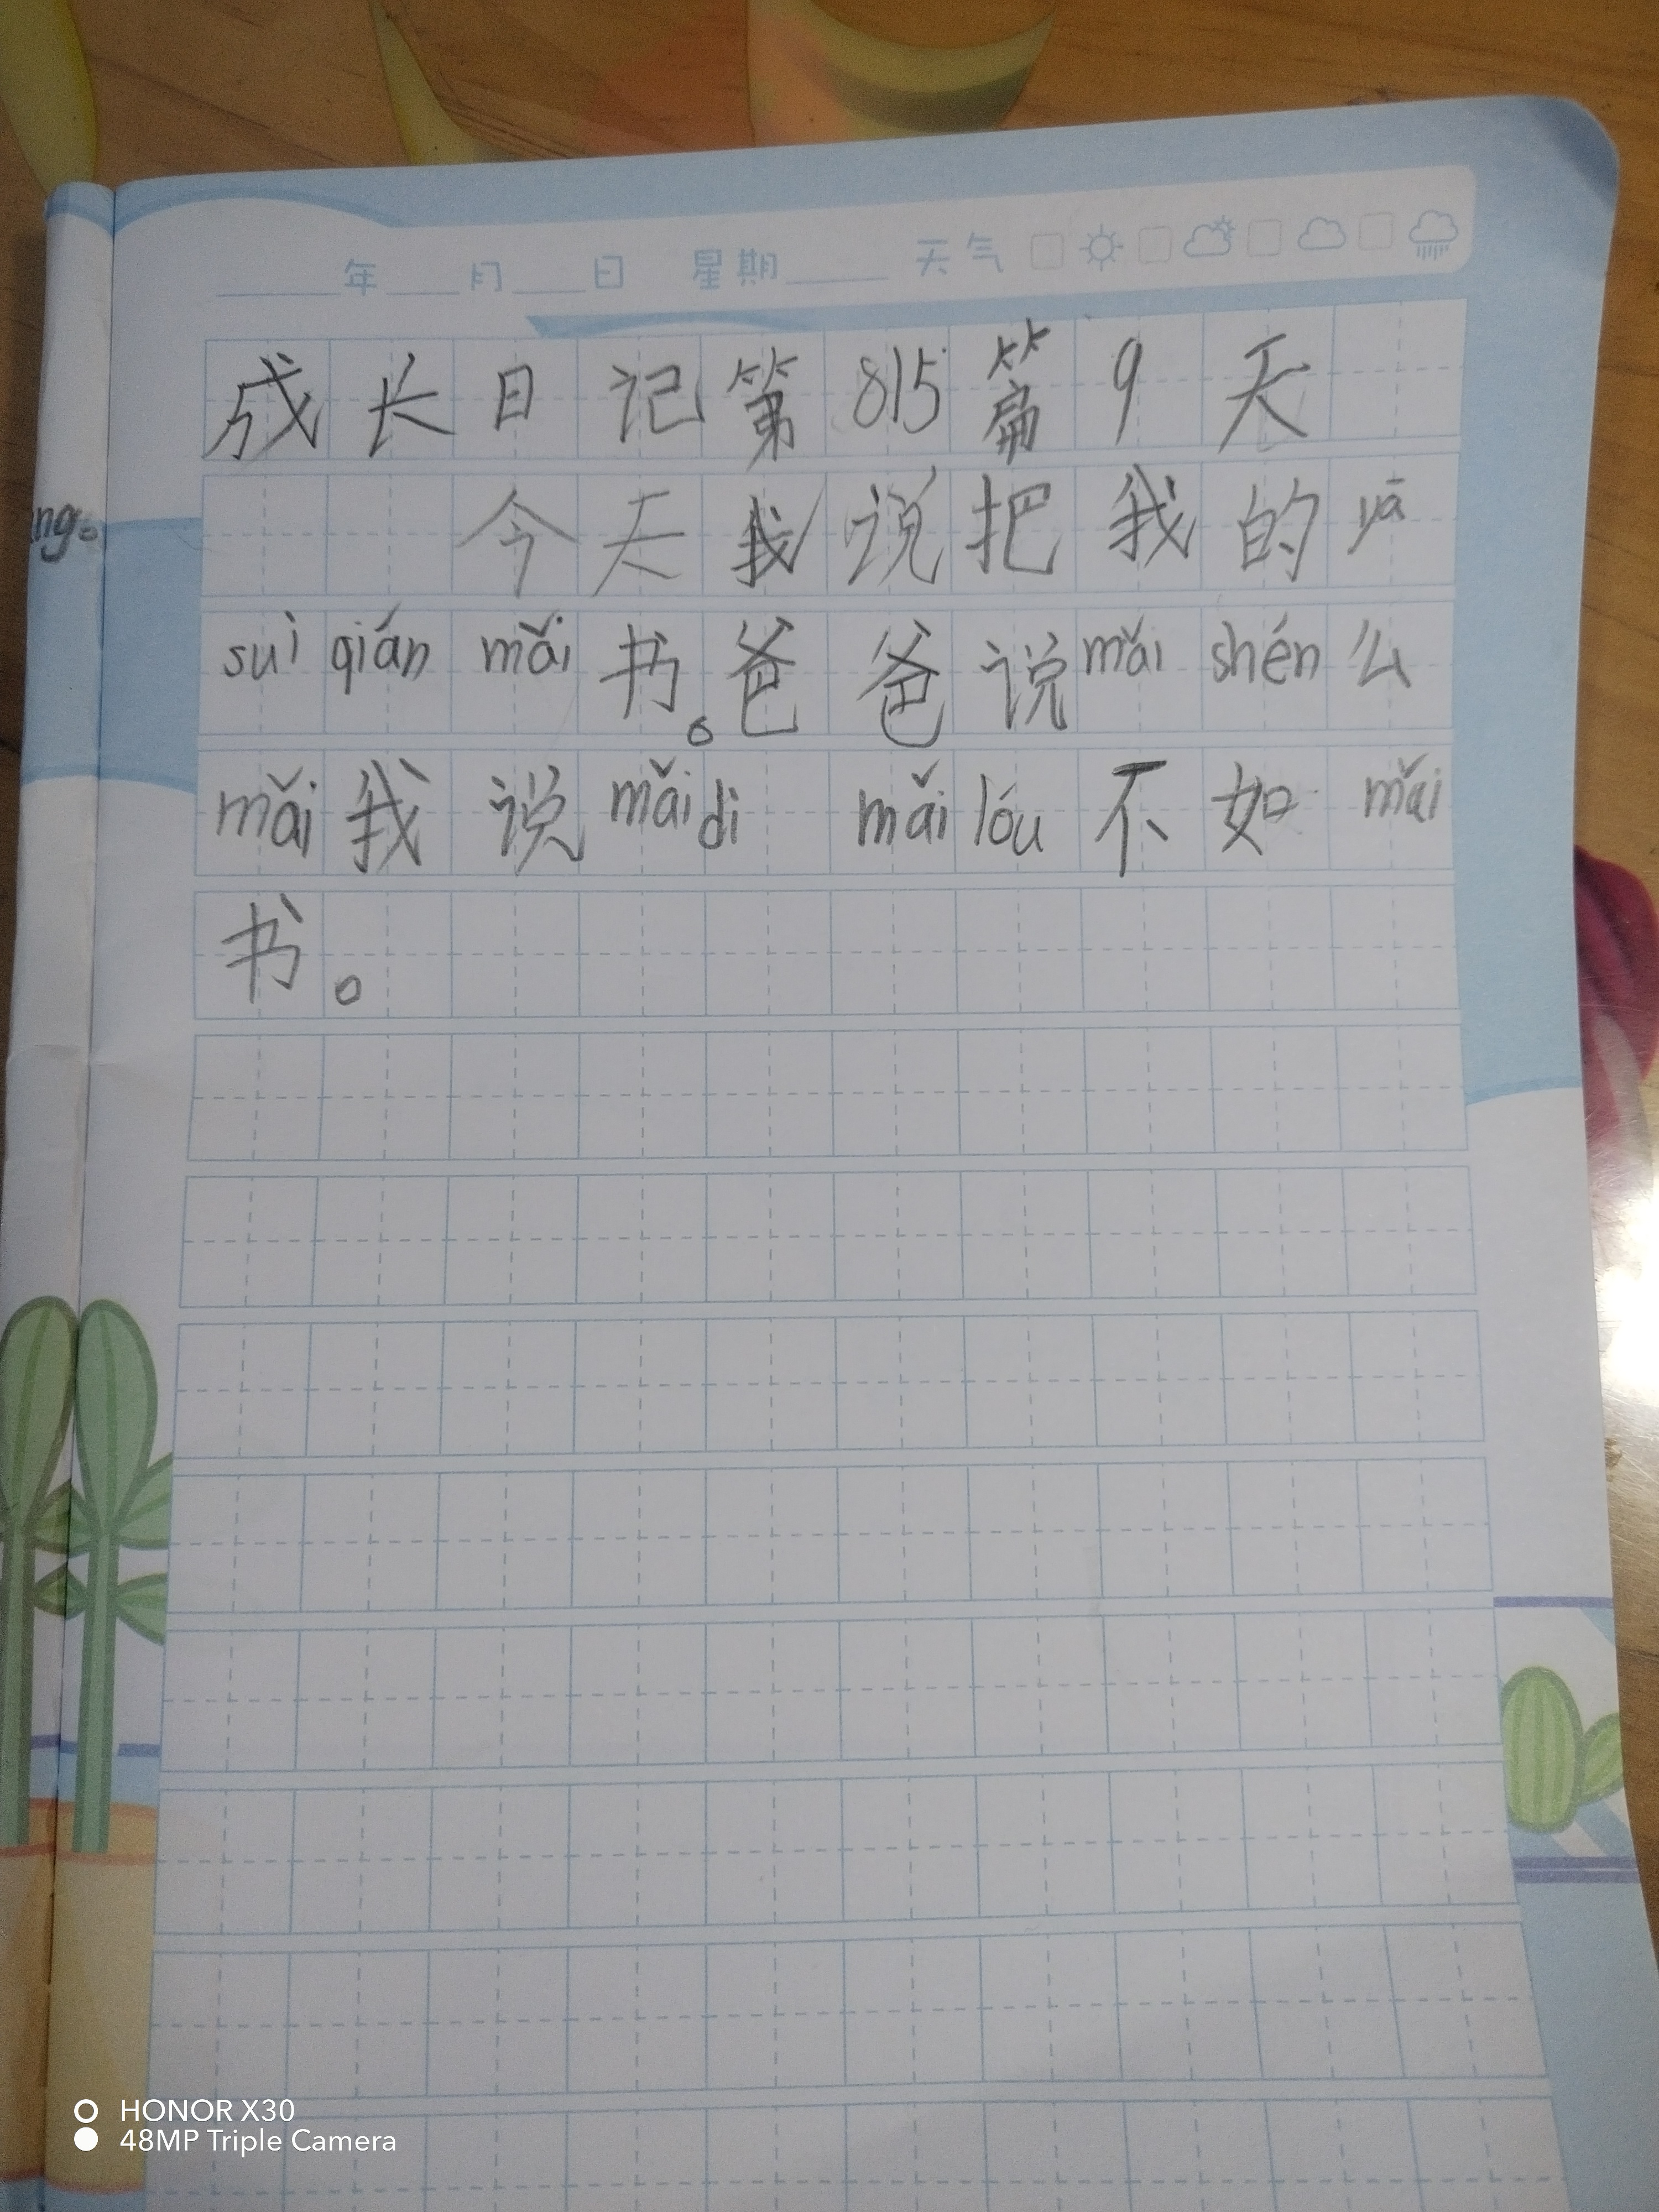 年 月 日 星期 天气
成长日记第815篇9天
ng。
今天我说把我的yā
suì qián mǎi 书。爸爸说 mǎi shén 么
mǎi 我说 mǎi dì mǎi lóu 不如 mǎi
书。
HONOR X30
48MP Triple Camera